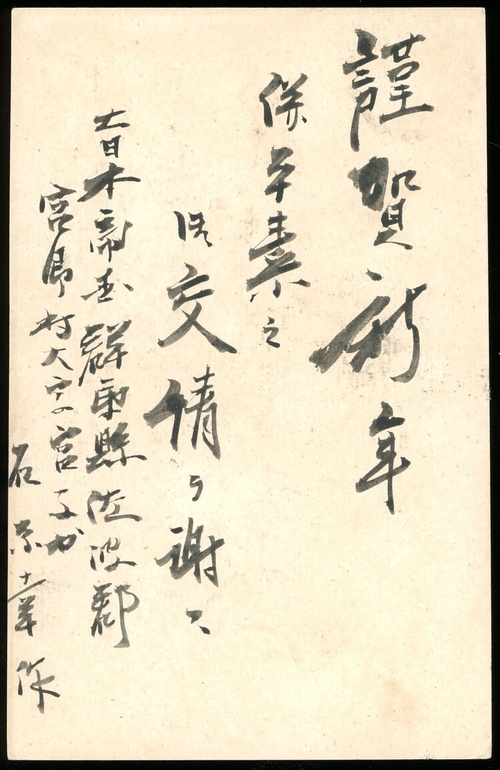 謹賀新年
併テ平素之
御交情ヲ謝ス
大日本帝国群馬縣佐波郡
宮郷村大字宮子